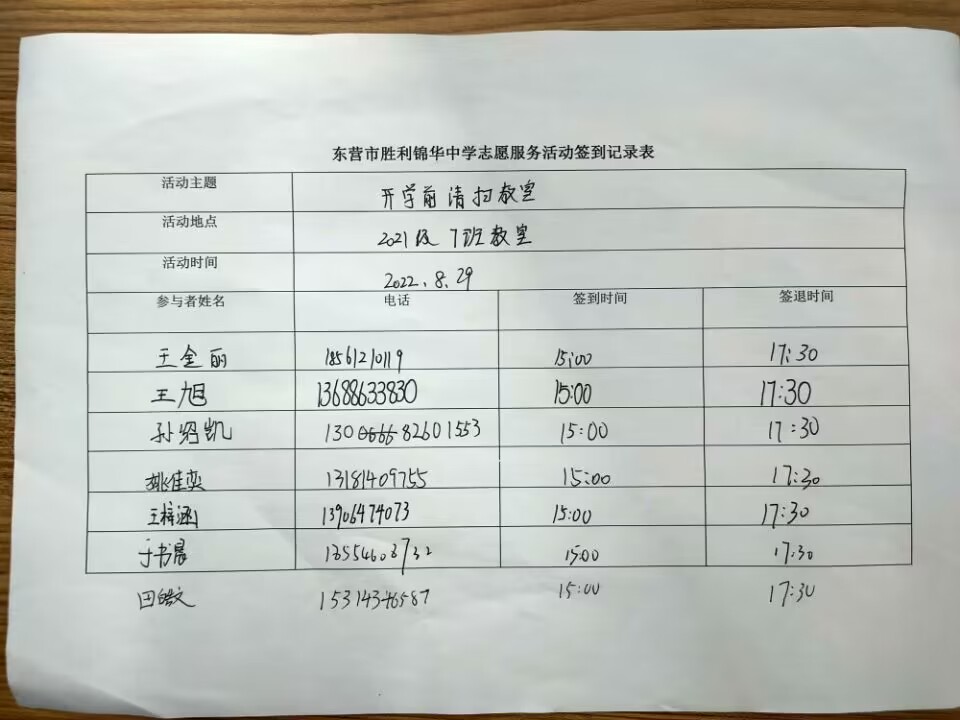 东营市胜利锦华中学志愿服务活动签到记录表
活动主题 开学前清扫教室
活动地点 2021级7班教室
活动时间 2022.8.29
参与者姓名 电话 签到时间 签退时间
王金丽 18561210119 15:00 17:30
王旭 13688633830 15:00 17:30
孙绍凯 13082601553 15:00 17:30
姚佳奕 13181409755 15:00 17:30
王梓涵 13906474073 15:00 17:30
于书晨 15:00 17:30
田皓文 15314346587 15:00 17:30